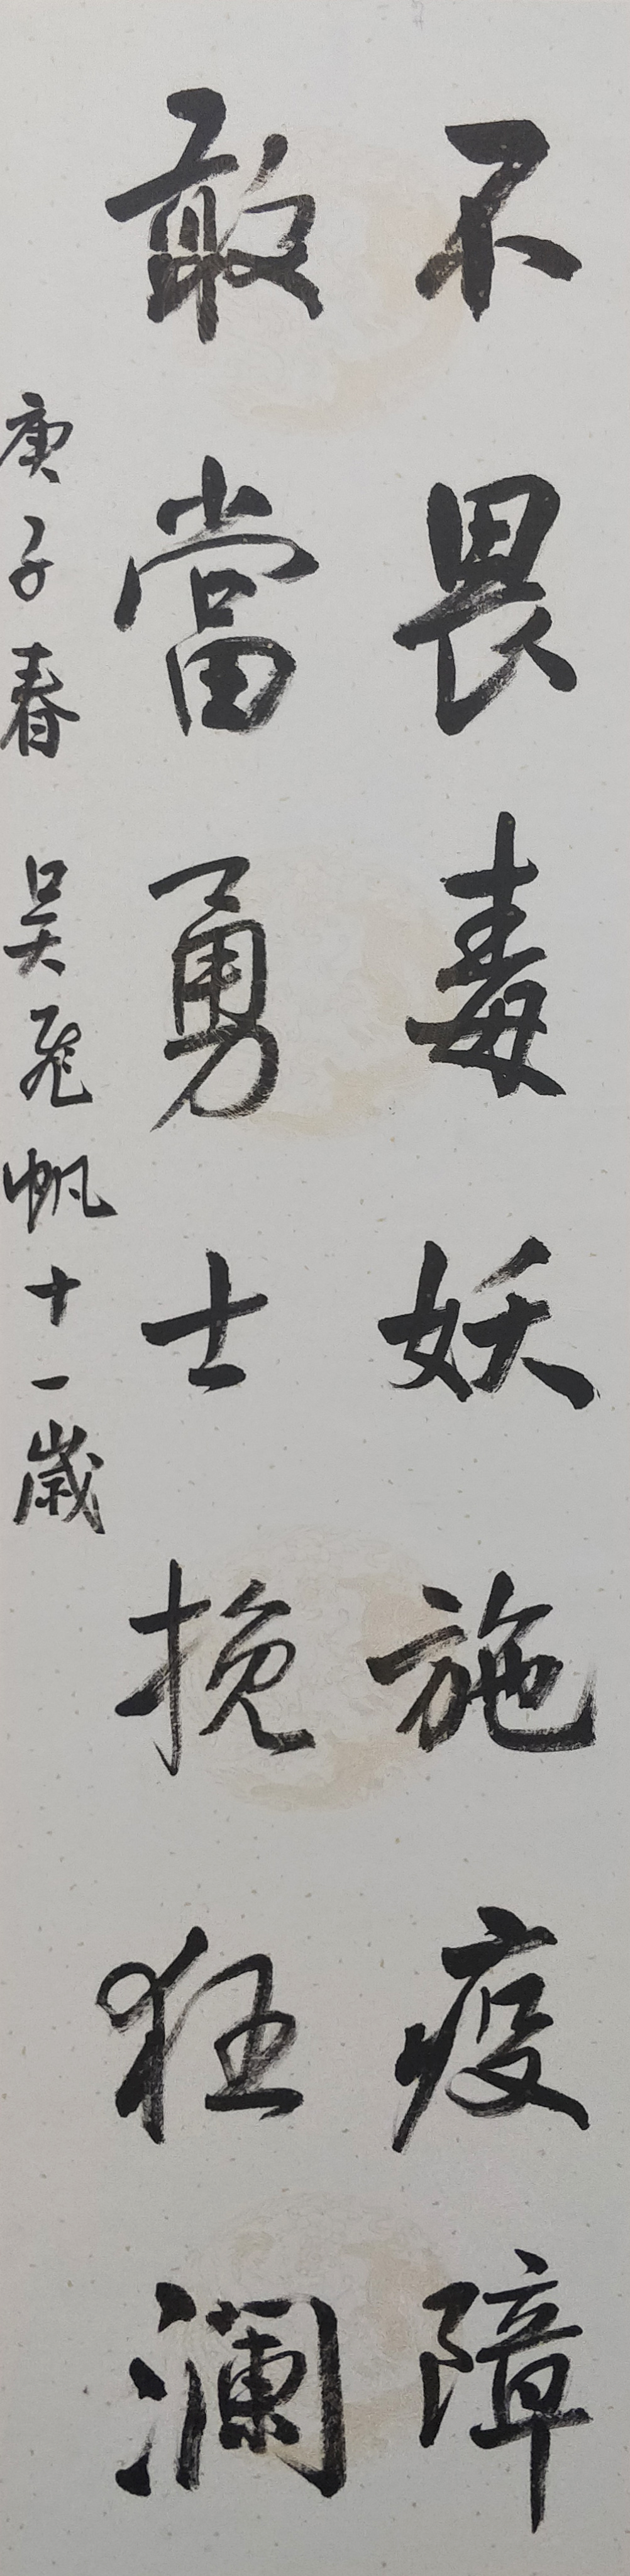 不畏毒妖施疫障
敢當勇士挽狂澜
庚子春 吴飛帆十一歲